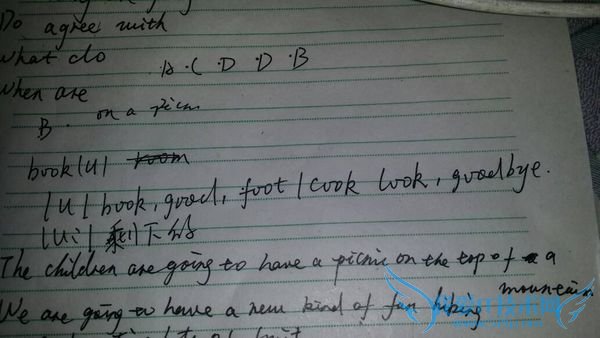 Do agree with
What do
A · C · D · D · B
When are
B. on a picni
book |u| room
|u| book, good, foot | cook look, goodbye.
|u:| 剩下的
The children are going to have a picnic on the top of a
mountain.
We are going to have a new kind of fun hiking